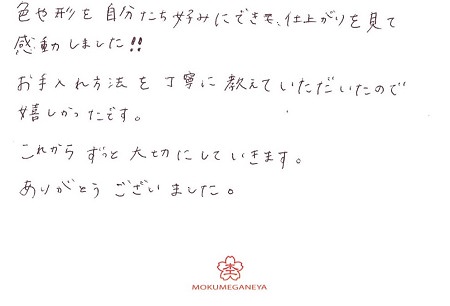 色や形を自分たち好みにできて、仕上がりを見て
感動しました!!
お手入れ方法を丁寧に教えていただいたので
嬉しかったです。
これからずっと大切にしていきます。
ありがとうございました。
MOKUMEGANEYA